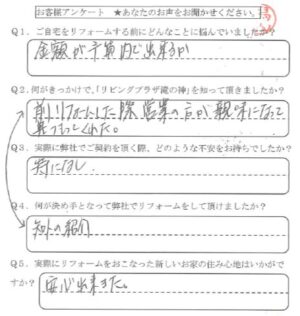 お客様アンケート ★あなたのお声をお聞かせください。
Q1．ご自宅をリフォームする前にどんなことに悩んでいましたか？
金額が予算内で出来るか
Q2．何がきっかけで、「リビングプラザ滝の神」を知って頂きましたか？
前リフォームした際営業の方が親味になって
Q3．実際に弊社でご契約を頂く際、どのような不安をお持ちでしたか？
特になし
Q4．何が決め手となって弊社でリフォームをして頂けましたか？
知人の紹介
Q5．実際にリフォームをおこなった新しいお家の住み心地はいかがで
すか？
安心出来た。